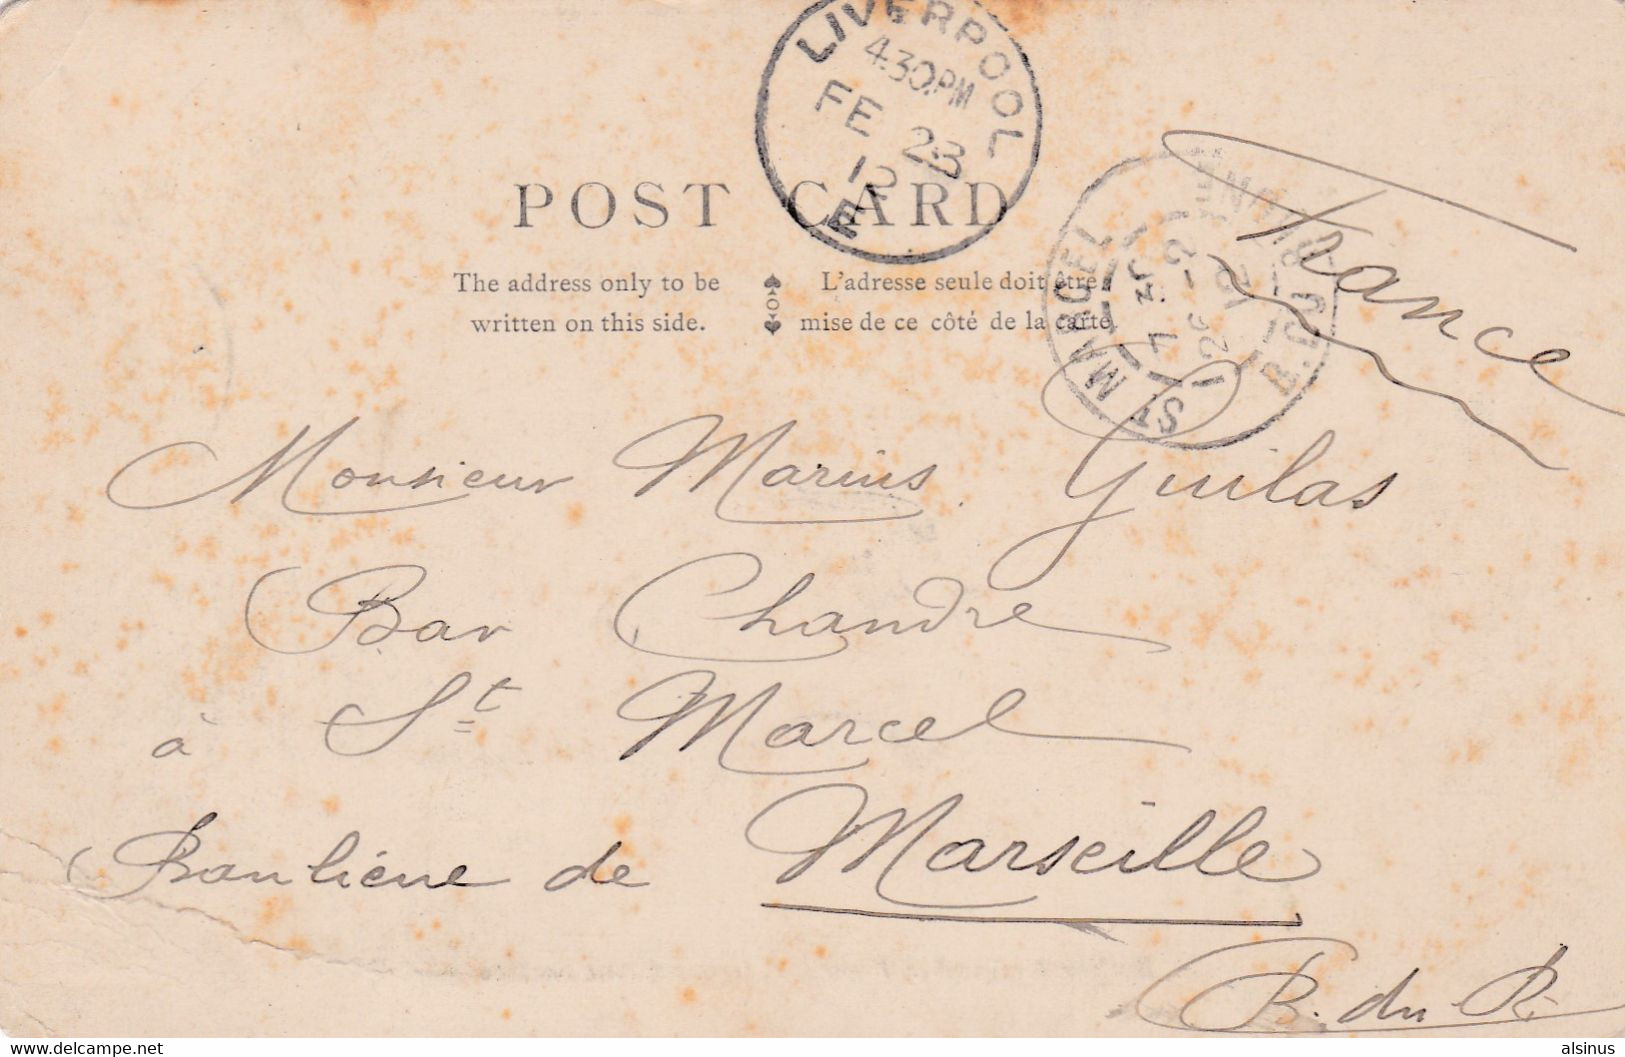 LIVERPOOL
4.30.PM
FE 23
12
POST CARD
The address only to be
written on this side.
L'adresse seule doit être
mise de ce côté de la carte.
ST MARCEL
B. DU R.
12
France
Monsieur Marius Guilas
Bar Chandre
à St Marcel
Banliéue de Marseille
B. du R.
alsinus